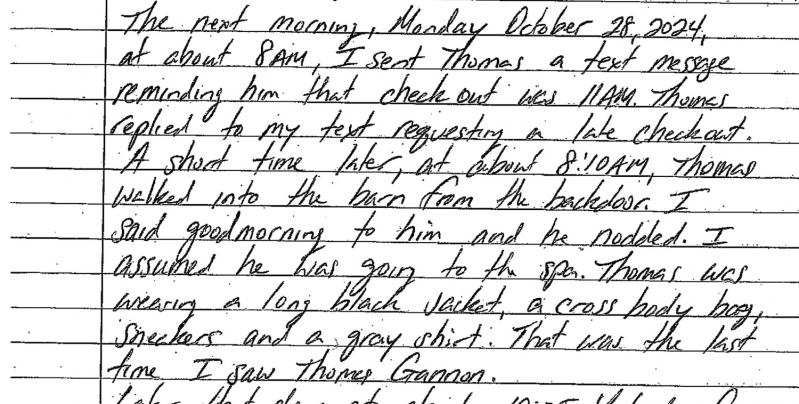 The next morning, Monday October 28, 2024,
at about 8AM, I sent Thomas a text message
reminding him that check out was 11AM. Thomas
replied to my text requesting a late checkout.
A short time later, at about 8:10AM, Thomas
walked into the barn from the backdoor. I
said goodmorning to him and he nodded. I
assumed he was going to the spa. Thomas was
wearing a long black jacket, a cross body bag,
sneakers and a gray shirt. That was the last
time I saw Thomas Gannon.